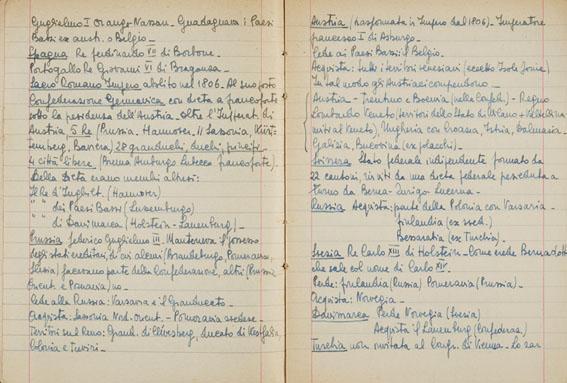 Guglielmo I Orange-Nassau - Guadagnava i Paesi
Bassi ex aust. o Belgio -
Spagna Re Ferdinando VII di Borbone -
Portogallo Re Giovanni VI di Braganza -
Sacro Romano Impero abolito nel 1806. Al suo posto
Confederazione Germanica con dieta a Francoforte
sotto la presidenza dell'Austria. Oltre l'Imperat. di
Austria 5 Re (Prussia. Hannover. Sassonia, Würt-
temberg, Baviera) 28 granduchi, duchi, principi
4 città libere (Brema Amburgo Lubecca Francoforte).
Della Dieta erano membri altresì:
Il Re d'Inghilt. (Hannover)
" " dei Paesi Bassi (Luxemburgo)
" " di Danimarca (Holstein - Lauenburg) -
Prussia Federico Guglielmo III. Manteneva il possesso
degli stati ereditari di cui alcuni (Brandeburgo Pomerania,
Slesia) facevano parte della Confederazione, altri (Prussia
Orient. e Posnania) no -
Cede alla Russia: Varsavia e il Granducato -
Acquista: Sassonia Nord. orient. - Pomerania svedese -
Territori sul Reno: Grand. di Berg, ducato di Westfalia,
Colonia e Treviri -
Austria (trasformata in Impero dal 1806) - Imperatore
Francesco I di Asburgo -
Cede ai Paesi Bassi: il Belgio -
Acquista: tutti i territori veneziani (eccetto Isole Jonie)
In tal modo gli Austriaci compendono -
Austria - Trentino e Boemia (nella Confed.) - Regno
Lombardo Veneto (territori dello Stato di Milano + Valtellina
uniti al Veneto), Ungheria con Croazia, Istria, Dalmazia -
Galizia, Bucovina (ex polacchi) -
Svizzera Stato federale indipendente formato da
22 cantoni, riuniti da una dieta federale presieduta a
turno da Berna - Zurigo - Lucerna -
Russia Acquista: parte della Polonia con Varsavia -
Finlandia (ex sved.)
Bessarabia (ex Turchia) -
Svezia Re Carlo XIII di Holstein - Come erede Bernadotte
che sale col nome di Carlo XIV -
Perde: Finlandia (Russia) Pomerania (Prussia) -
Acquista: Norvegia -
Danimarca Perde Norvegia (Svezia)
Acquista il Lauenburg (Confederaz.)
Turchia non invitata al Congr. di Vienna - Lo zar